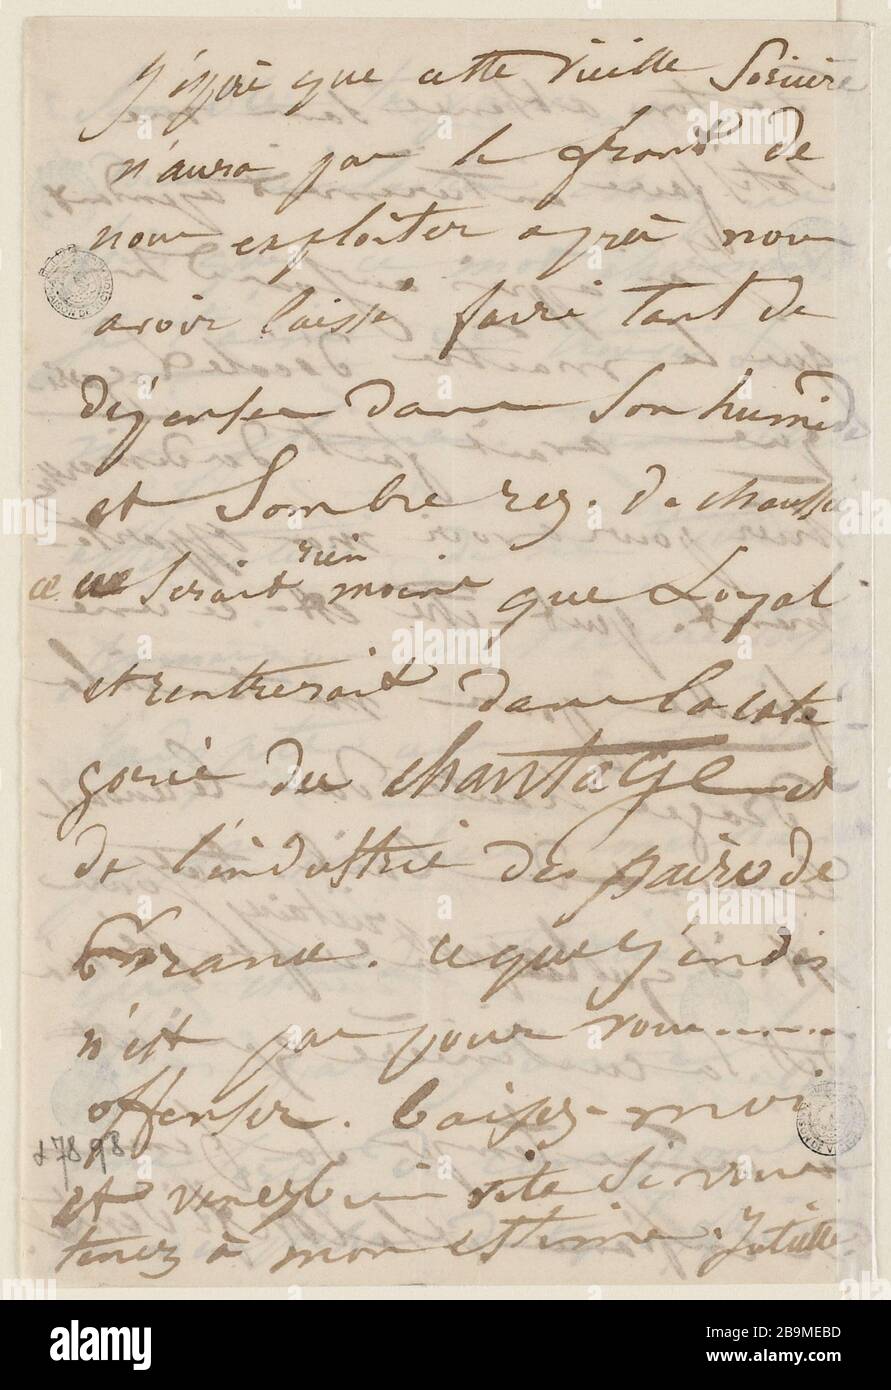 J'espère que cette vieille Sorcière
n'aura pas le front de
nous exploiter après nous
avoir laissé faire tant de
dépenses dans son humide
et sombre rez-de-chaussée
ce serait rien moins que Loyal
et rentrerait dans la caté
gorie du chantage et
de l'industrie des pairs de
France. Ce que j'en dis
n'est pas pour vous......
offenser. Baisez-moi
et venez bien vite si vous
tenez à mon estime. Juliette
27898
alamy
Image ID: 2B9MEBD
www.alamy.com